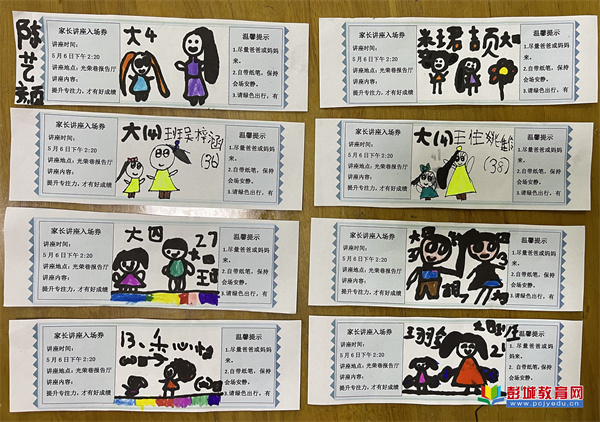 陈艺颖
家长讲座入场券
讲座时间:
5月6日下午2:20
讲座地点:光荣巷报告厅
讲座内容:
提升专注力,才有好成绩
大4
温馨提示
1.尽量爸爸或妈妈
来。
2.自带纸笔,保持
会场安静。
3.请绿色出行,有
家长讲座入场券
讲座时间:
5月6日下午2:20
讲座地点:光荣巷报告厅
讲座内容:
提升专注力,才有好成绩
米珺颉大4
温馨提示
1.尽量爸爸或妈妈
来。
2.自带纸笔,保持
会场安静。
3.请绿色出行,有
家长讲座入场券
讲座时间:
5月6日下午2:20
讲座地点:光荣巷报告厅
讲座内容:
提升专注力,才有好成绩
大(4)班吴梓涵
(36)
温馨提示
1.尽量爸爸或妈妈
来。
2.自带纸笔,保持
会场安静。
3.请绿色出行,有
家长讲座入场券
讲座时间:
5月6日下午2:20
讲座地点:光荣巷报告厅
讲座内容:
提升专注力,才有好成绩
大(4)王佳
(38)
温馨提示
1.尽量爸爸或妈妈
来。
2.自带纸笔,保持
会场安静。
3.请绿色出行,有
家长讲座入场券
讲座时间:
5月6日下午2:20
讲座地点:光荣巷报告厅
讲座内容:
提升专注力,才有好成绩
大四
27
王
温馨提示
1.尽量爸爸或妈妈
来。
2.自带纸笔,保持
会场安静。
3.请绿色出行,有
家长讲座入场券
讲座时间:
5月6日下午2:20
讲座地点:光荣巷报告厅
讲座内容:
提升专注力,才有好成绩
大
温馨提示
1.尽量爸爸或妈妈
来。
2.自带纸笔,保持
会场安静。
3.请绿色出行,有
家长讲座入场券
讲座时间:
5月6日下午2:20
讲座地点:光荣巷报告厅
讲座内容:
提升专注力,才有好成绩
13、
心怡
温馨提示
1.尽量爸爸或妈妈
来。
2.自带纸笔,保持
会场安静。
家长讲座入场券
讲座时间:
5月6日下午2:20
讲座地点:光荣巷报告厅
讲座内容:
提升专注力,才有好成绩
王羽
温馨提示
1.尽量爸爸或妈妈
来。
彭城教育网
www.pcjyedu.cn